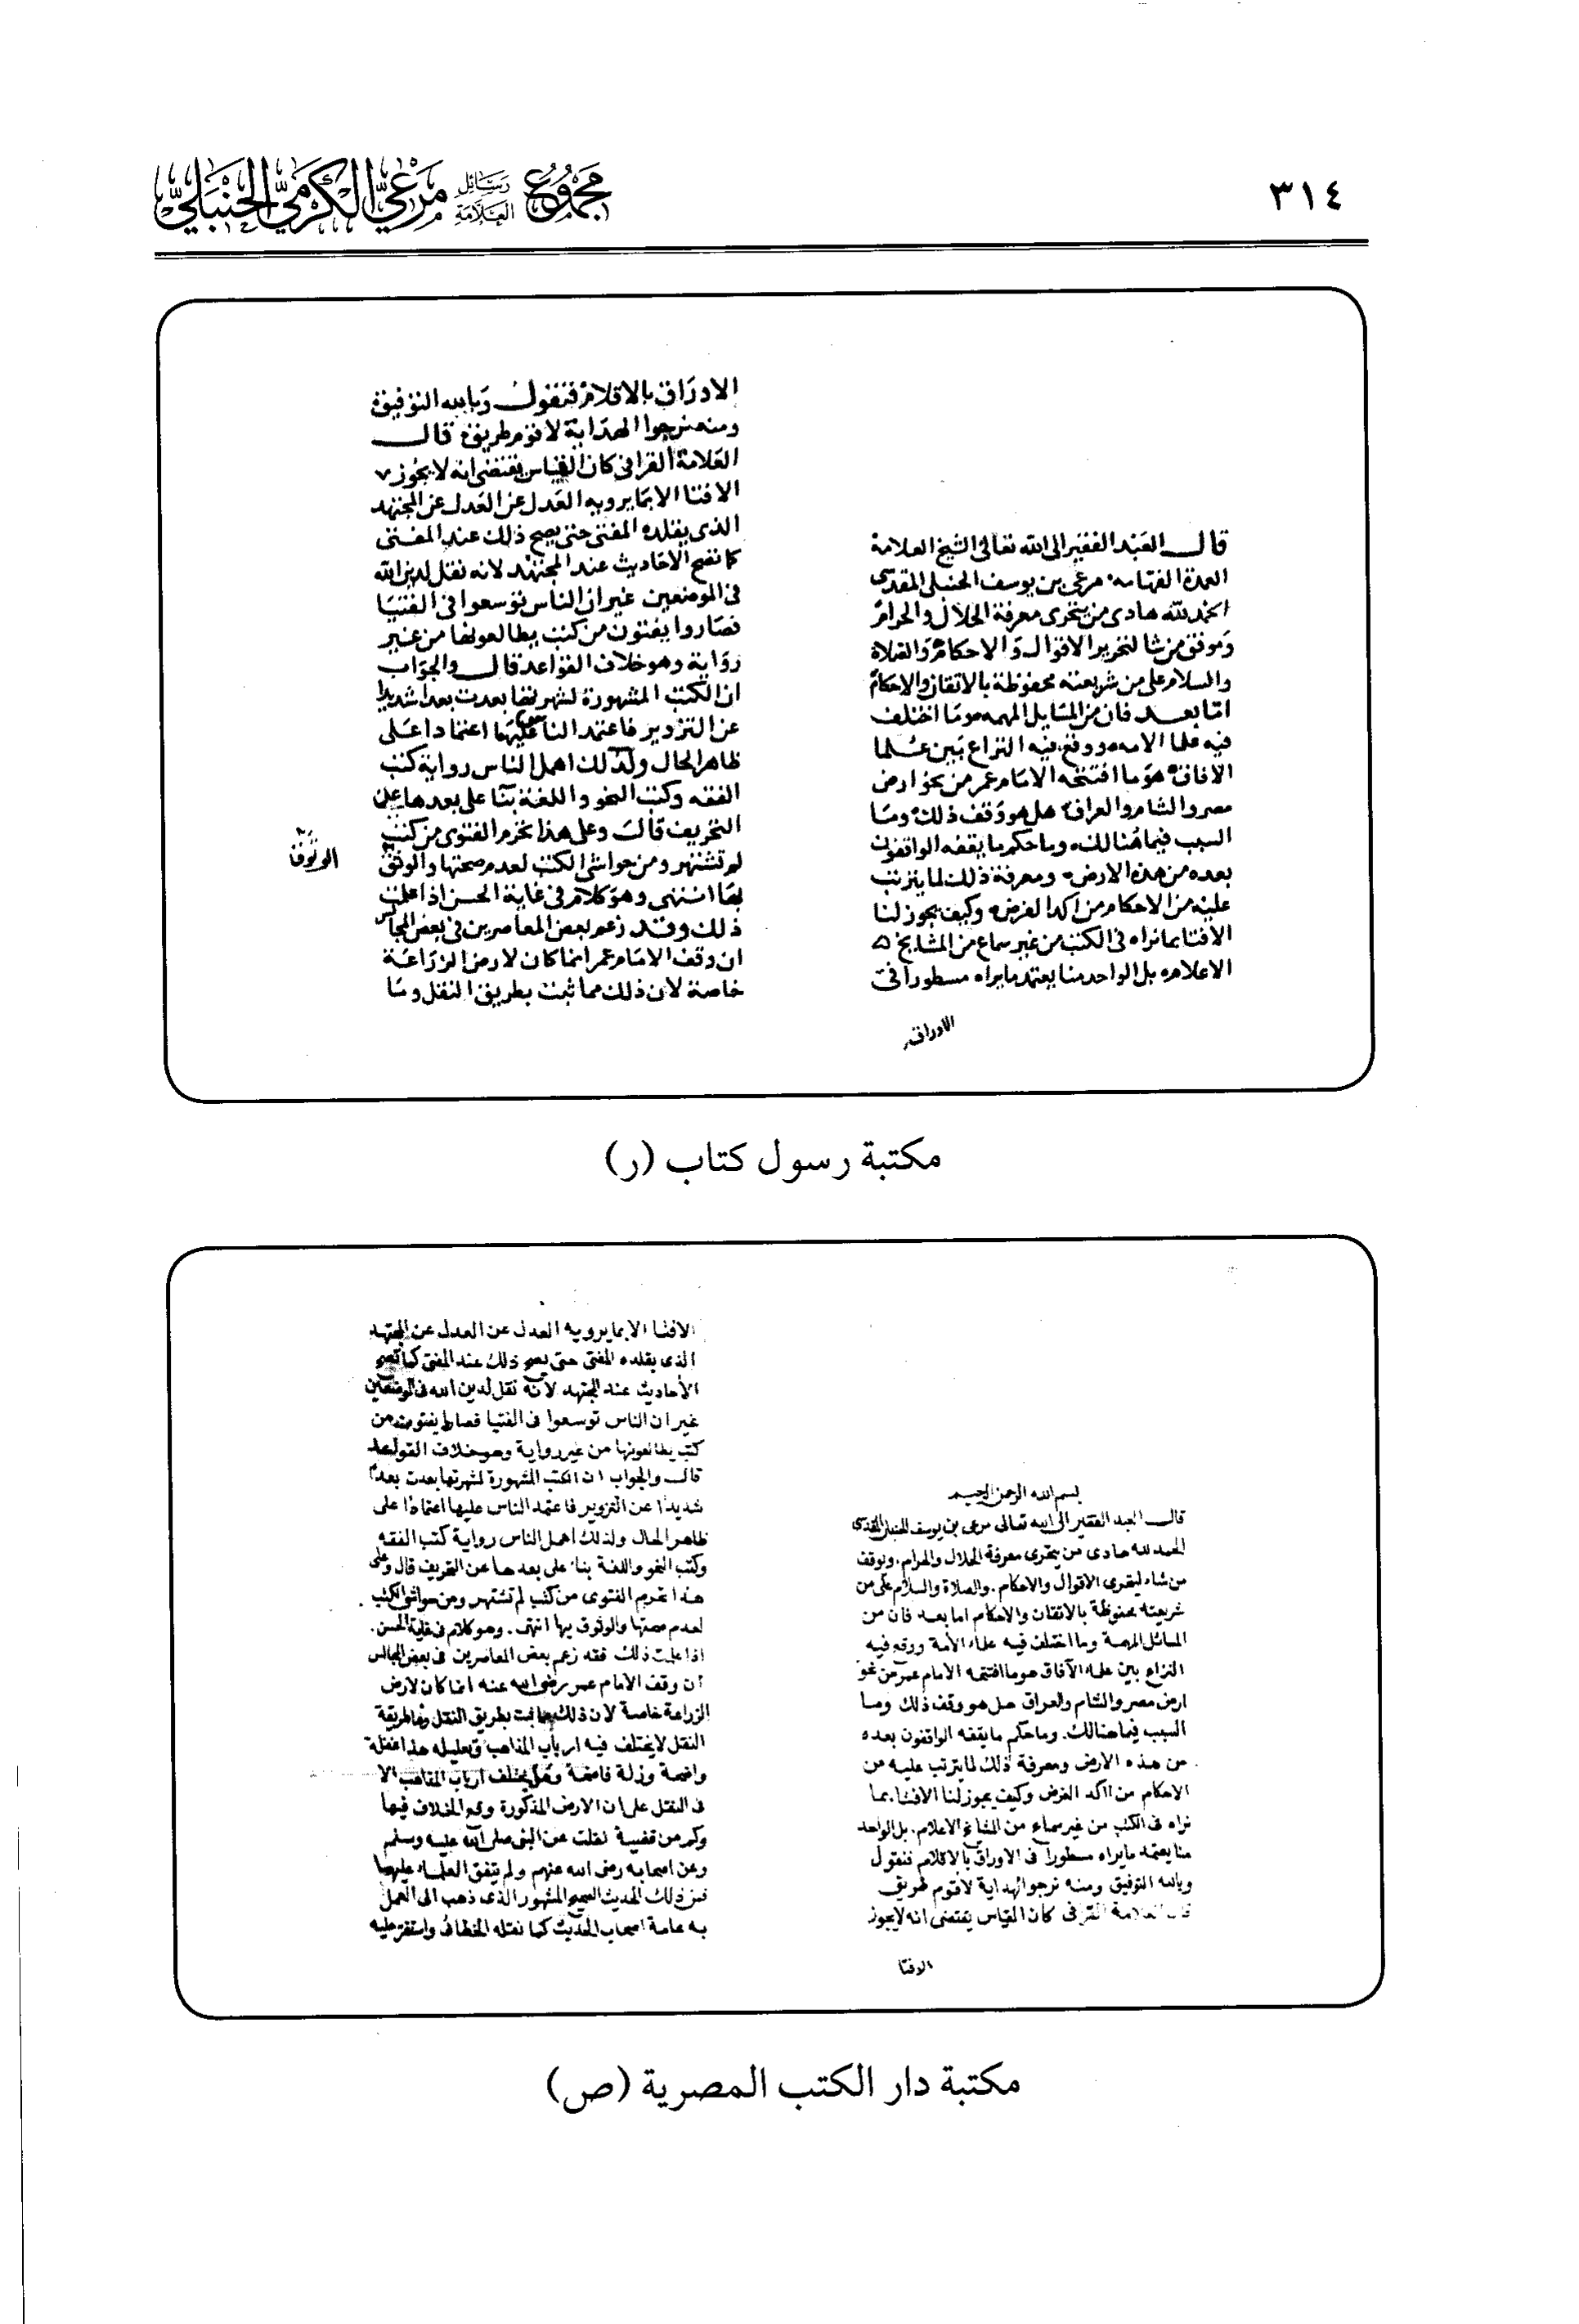 ٣١٤
مجموع رسائل العلامة مرعي الكرمي الحنبلي
قال العبد الفقير الى الله تعالى الشيخ العلامة
العمدة الفهامه مرعي بن يوسف الحنبلى المقدسى
الحمد لله هادى من يتحرى معرفة الحلال والحرام
وموفق من شا لتحرير الاقوال والاحكام والصلاة
والسلام على من شريعته محفوظة بالاتقان والاحكام
اما بعد فان من المسايل المهمه وما اختلف
فيه علما الامه ووقع فيه النزاع بين علما
الافاق هو ما افتتحه الامام عمر من نحو ارض
مصر والشام والعراق هل هو وقف ذلك وما
السبب فيما هنالك وما حكم ما يقفه الواقفون
بعده من هذه الارض ومعرفة ذلك لما يترتب
عليه من الاحكام من اكد الغرض وكيف يجوز لنا
الافتا بما نراه فى الكتب من غير سماع من المشايخ
الاعلام بل الواحد منا يعتمد ما يراه مسطورا فى
الاوراق
الاوراق بالاقلام فنقول وبالله التوفيق
ومنه نرجوا الهداية لاقوم طريق قال
العلامة القرافى كان القياس يقتضى انه لا يجوز
الافتا الا بما يرويه العدل عن العدل عن المجتهد
الذى يقلده المفتى حتى يصح ذلك عند المفتى
كما تصح الاحاديث عند المجتهد لانه نقل لدين الله
فى الموضعين غير ان الناس توسعوا فى الفتيا
فصاروا يفتون من كتب يطالعونها من غير
رواية وهو خلاف القواعد قال والجواب
ان الكتب المشهورة لشهرتها بعدت بعدا شديدا
عن التزوير فاعتمد الناس عليها اعتمادا على
ظاهر الحال ولذلك اهمل الناس رواية كتب
الفقه وكتب النحو واللغة بنا على بعدها عن
التحريف قال وعلى هذا تحرم الفتوى من كتب
لم تشتهر ومن حواشى الكتب لعدم صحتها والوثق
الوثوق
بها انتهى وهو كلام فى غاية الحسن اذا علمت
ذلك وقد زعم بعض المعاصرين فى بعض المجالس
ان وقف الامام عمر انما كان لارض الزراعة
خاصة لان ذلك مما ثبت بطريق النقل وما
مكتبة رسول كتاب (ر)
بسم الله الرحمن الرحيم
قال العبد الفقير الى الله تعالى مرعى بن يوسف الحنبلى المقدسى
الحمد لله هادى من يتحرى معرفة الحلال والحرام. وموفق
من شاء لتحرى الاقوال والاحكام. والصلاة والسلام على من
شريعته محفوظة بالاتقان والاحكام اما بعد فان من
المسائل المهمة وما اختلف فيه علماء الأمة ووقع فيه
النزاع بين علماء الآفاق هو ما افتتحه الامام عمر من نحو
ارض مصر والشام والعراق هل هو وقف ذلك وما
السبب فيما هنالك. وما حكم ما يقفه الواقفون بعده
من هذه الارض ومعرفة ذلك لما يترتب عليه من
الاحكام من آكد الغرض وكيف يجوز لنا الافتاء بما
نراه فى الكتب من غير سماع من المشايخ الاعلام. بل الواحد
منا يعتمد ما يراه مسطوراً فى الاوراق بالاقلام فنقول
وبالله التوفيق ومنه نرجو الهداية لاقوم طريق
قال العلامة القرافى كان القياس يقتضى انه لا يجوز
الافتا
الافتا الا بما يرويه العدل عن العدل عن المجتهد
الذى يقلده المفتى حتى يصح ذلك عند المفتى كما تصح
الأحاديث عند المجتهد لأنه نقل لدين الله فى الموضعين
غير ان الناس توسعوا فى الفتيا فصاروا يفتون من
كتب يطالعونها من غير رواية وهو خلاف القواعد
قال والجواب ان الكتب المشهورة لشهرتها بعدت بعدًا
شديدًا عن التزوير فاعتمد الناس عليها اعتمادًا على
ظاهر الحال ولذلك اهمل الناس رواية كتب الفقه
وكتب النحو واللغة بناء على بعدها عن التحريف قال وعلى
هذا تحرم الفتوى من كتب لم تشتهر ومن حواشى الكتب
لعدم صحتها والوثوق بها انتهى. وهو كلام فى غاية الحسن.
اذا علمت ذلك فقد زعم بعض المعاصرين فى بعض المجالس
أن وقف الامام عمر رضى الله عنه انما كان لارض
الزراعة خاصة لان ذلك مما ثبت بطريق النقل وما طريقة
النقل لا يختلف فيه ارباب المذاهب وتعليله هذا غفلة
واضحة وزلة فاضحة وهل يختلف ارباب المذاهب الا
فى النقل على ان الارض المذكورة وقع الخلاف فيها
وكم من قضية نقلت عن النبى صلى الله عليه وسلم
وعن اصحابه رضى الله عنهم ولم يتفق العلماء عليها
فمن ذلك الحديث الصحيح المشهور الذى ذهب الى العمل
به عامة اصحاب الحديث كما نقله الخطابى واستقر عليه
مكتبة دار الكتب المصرية (ص)